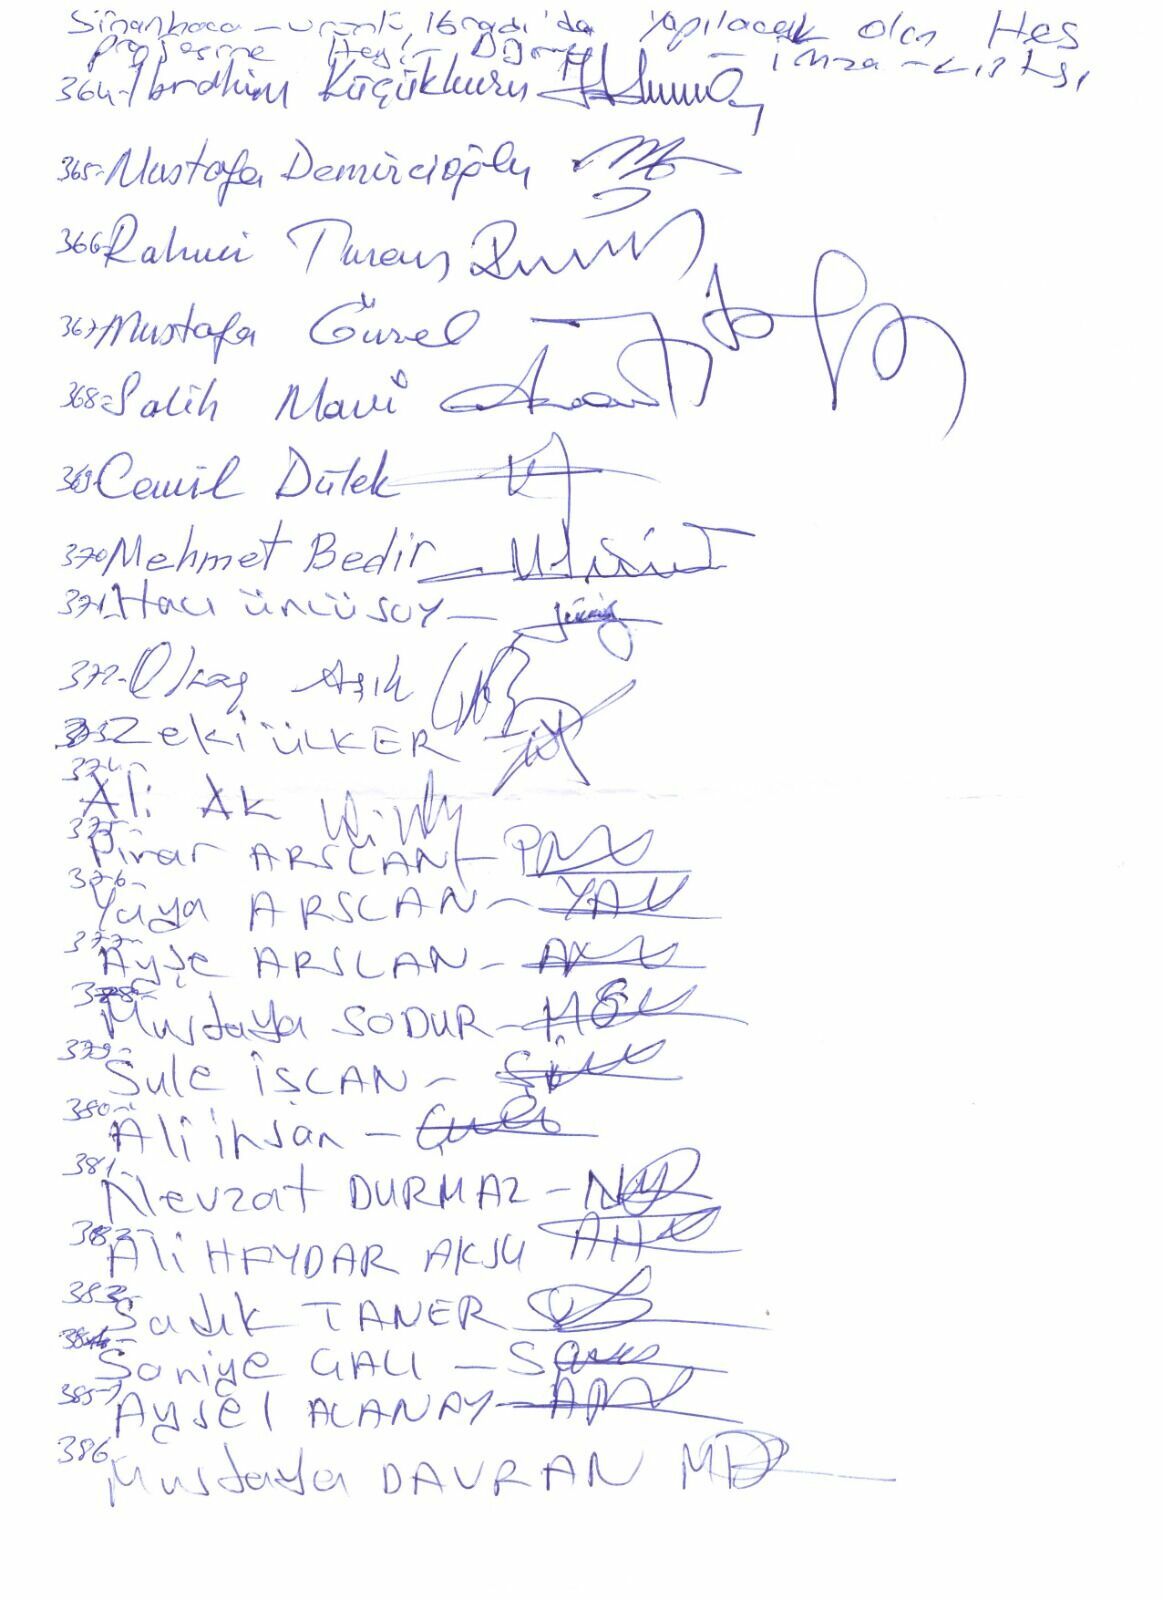 Sinanhoca - ı'da yapılacak olan Hes
projesine Hayır imza - Listesi
364- İbrahim Küçükkuru
365- Mustafa Demircioğlu
366- Rahmi Turan
367- Mustafa Gürel
368- Salih Mavi
369- Cemil Dülek
370- Mehmet Bedir
371- Hacı üncüsoy
372- Olcay Aşık
373- Zeki ÜLKER
374-
Ali Ak
375-
Pınar ARSLAN -
376-
Yaya ARSLAN -
377-
Ayşe ARSLAN -
378-
Mustaya SODUR -
379-
Şule İŞCAN -
380-
Ali ihsan -
381-
Nevzat DURMAZ -
382-
Ali HAYDAR AKSU
383-
Sadık TANER
384-
Saniye GALI -
385-
Aysel ALANAY -
386
Mustaya DAVRAN